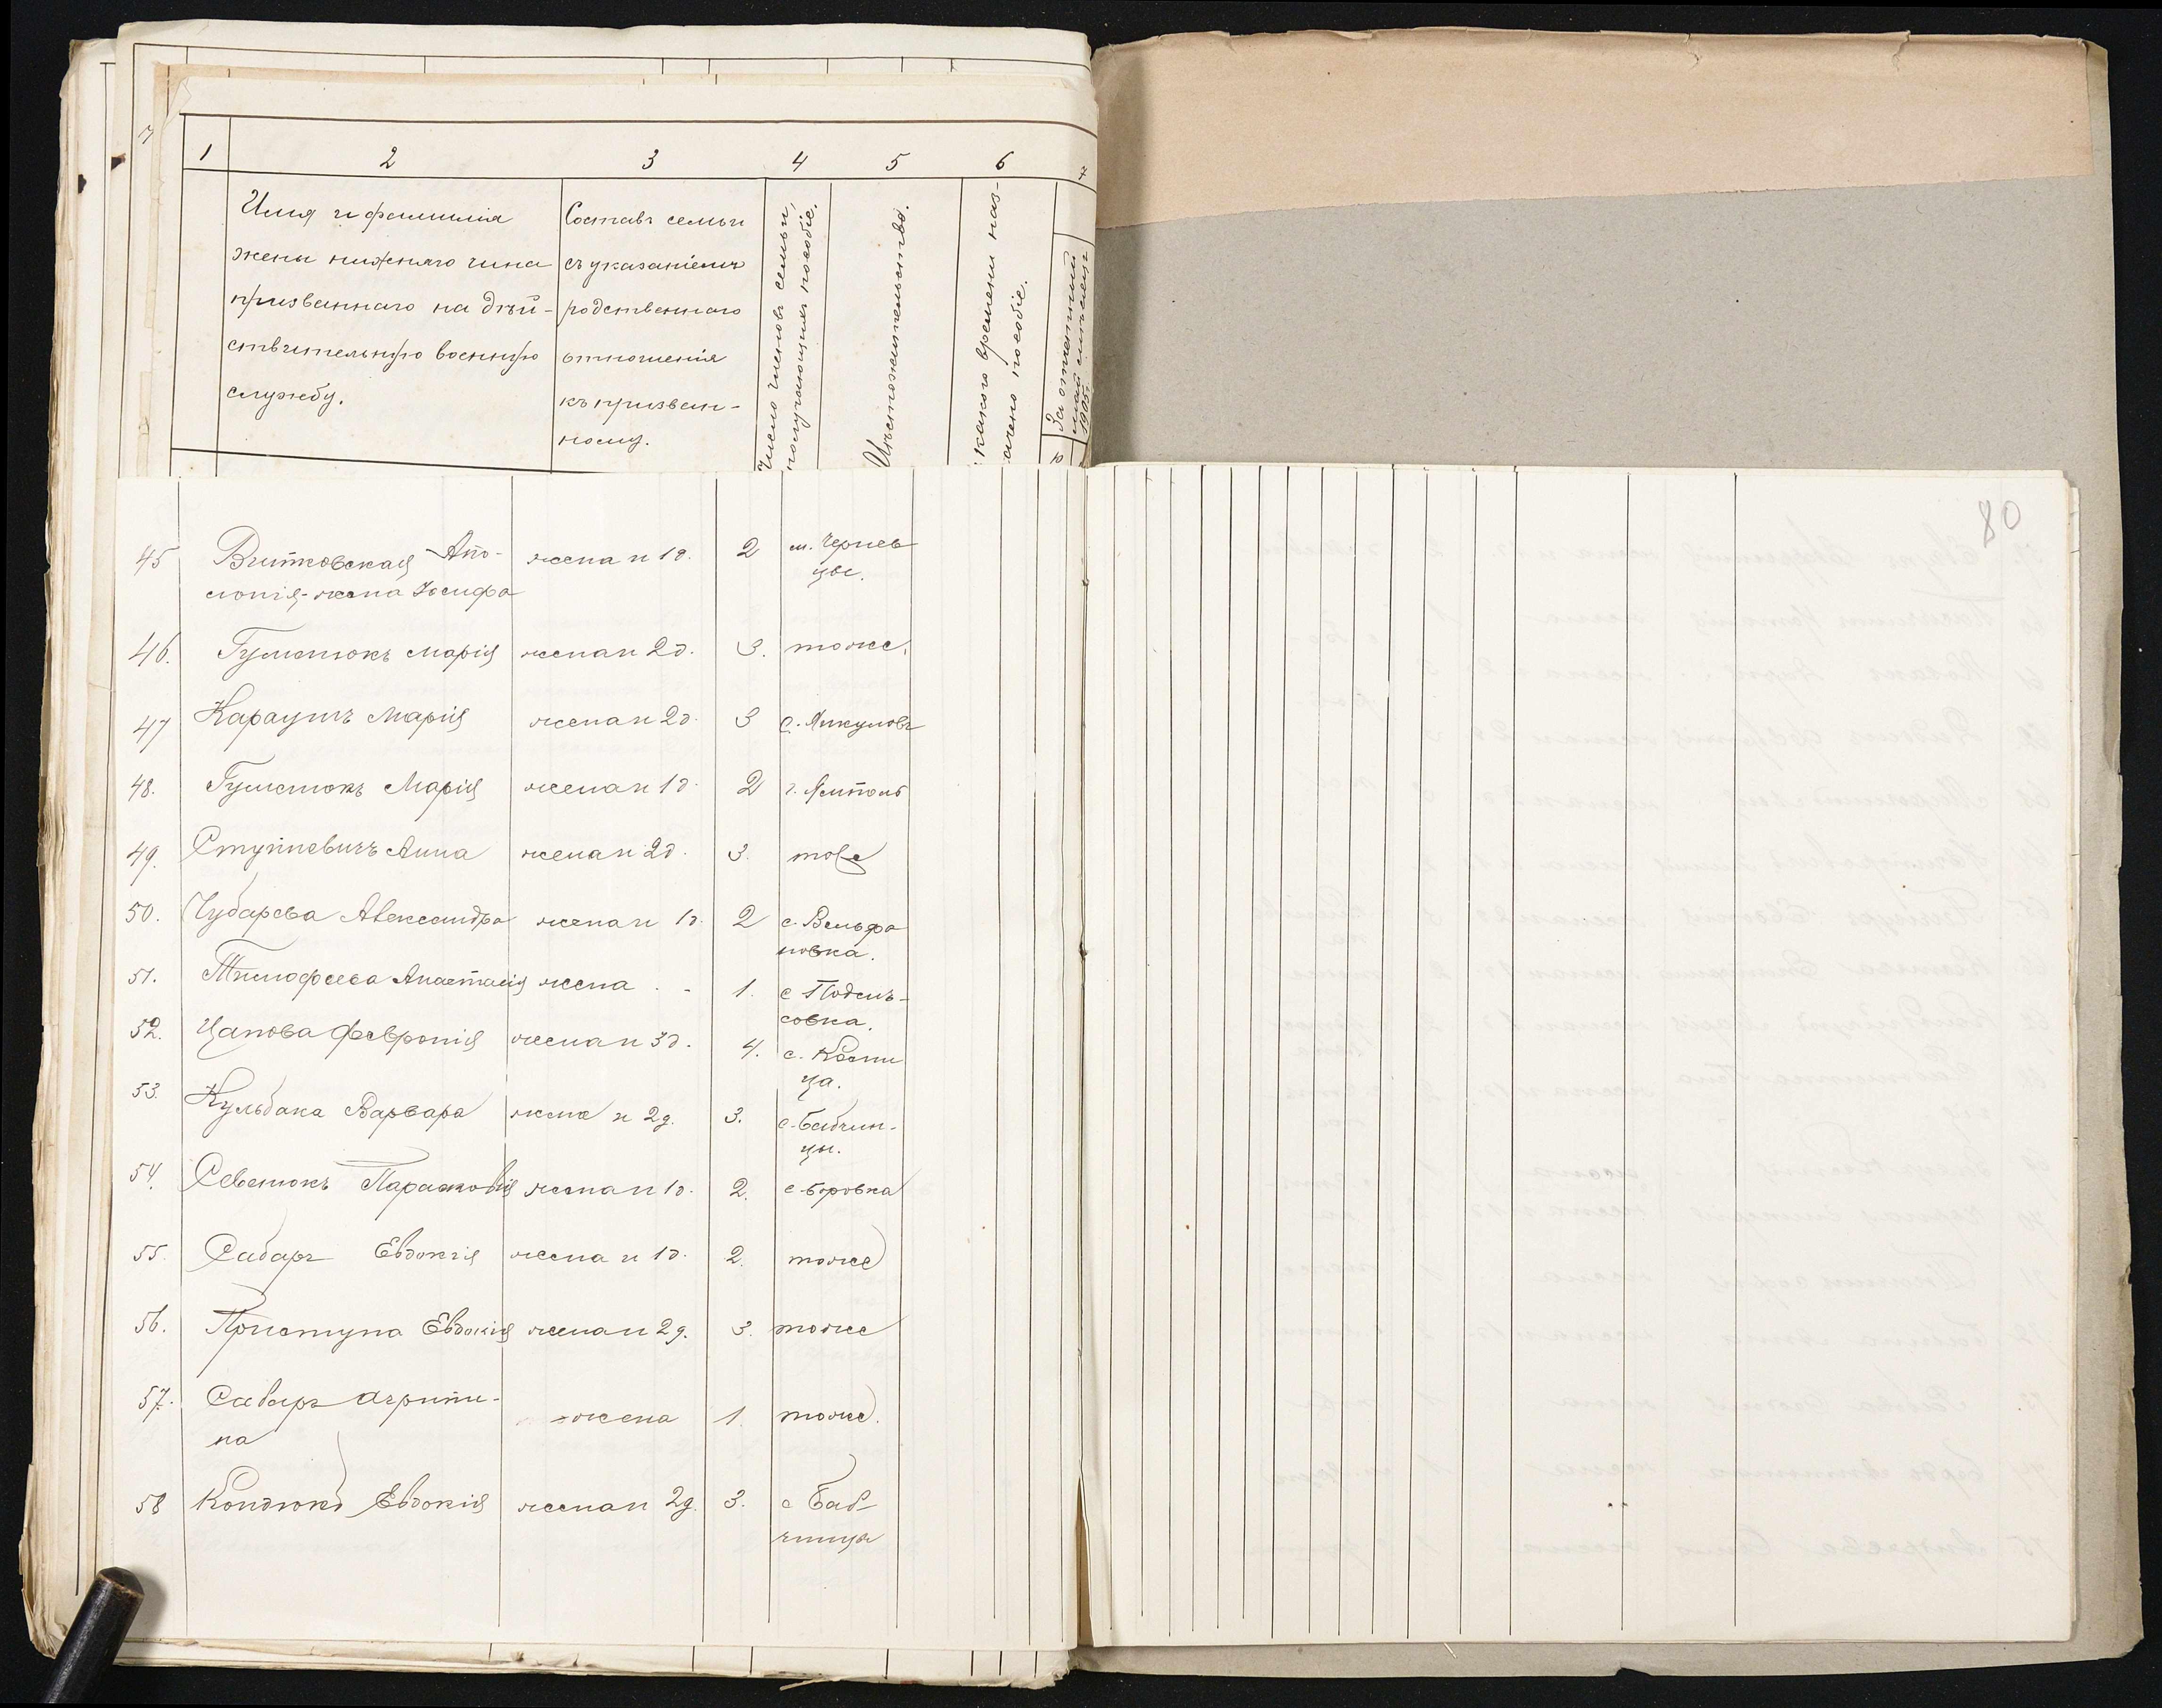 7
1 2 3 4 5 6 7
Имя и фамилія
жены нижняго чина
призваннаго на дѣй-
ствительную военную
службу.
Составъ семьи
съ указаніемъ
родственнаго
отношенія
къ призван-
ному.
Число членовъ семьи,
получающихъ пособіе.
Мѣстожительство.
какого времени наз-
ачено пособіе.
За
май
1905
80
45 Витковская Апо- жена и 1 д. 2 м. Чернев
лонія-жена Іосифа цы.
46. Гуменюкъ Марія жена и 2 д. 3. тоже.
47 Караушъ Марія жена и 2 д. 3 с.
48. Гуменюкъ Марія жена и 1 д. 2 г. Ямполь
49. Ступневичъ Анна жена и 2 д. 3.
50. Чубарева Александра жена и 1 д. 2 с.
новка.
51. Тимофеева Анастасія жена 1. с
совка.
52. Цапова Февронія жена и 3 д. 4. с. Косни
ца.
53. Кульбака Варвара жена и 2 д. 3. с. Бабчин-
цы.
54. Севенюкъ Парасковія жена и 1 д. 2. с. Боровка
55. Сабаръ Евдокія жена и 1 д. 2. тоже
56. Приступа Евдокія жена и 2 д. 3. тоже
57. Сабаръ Агрипи- жена 1. тоже.
на
58 Кондюкъ Евдокія жена и 2 д. 3. с Баб-
чинцы